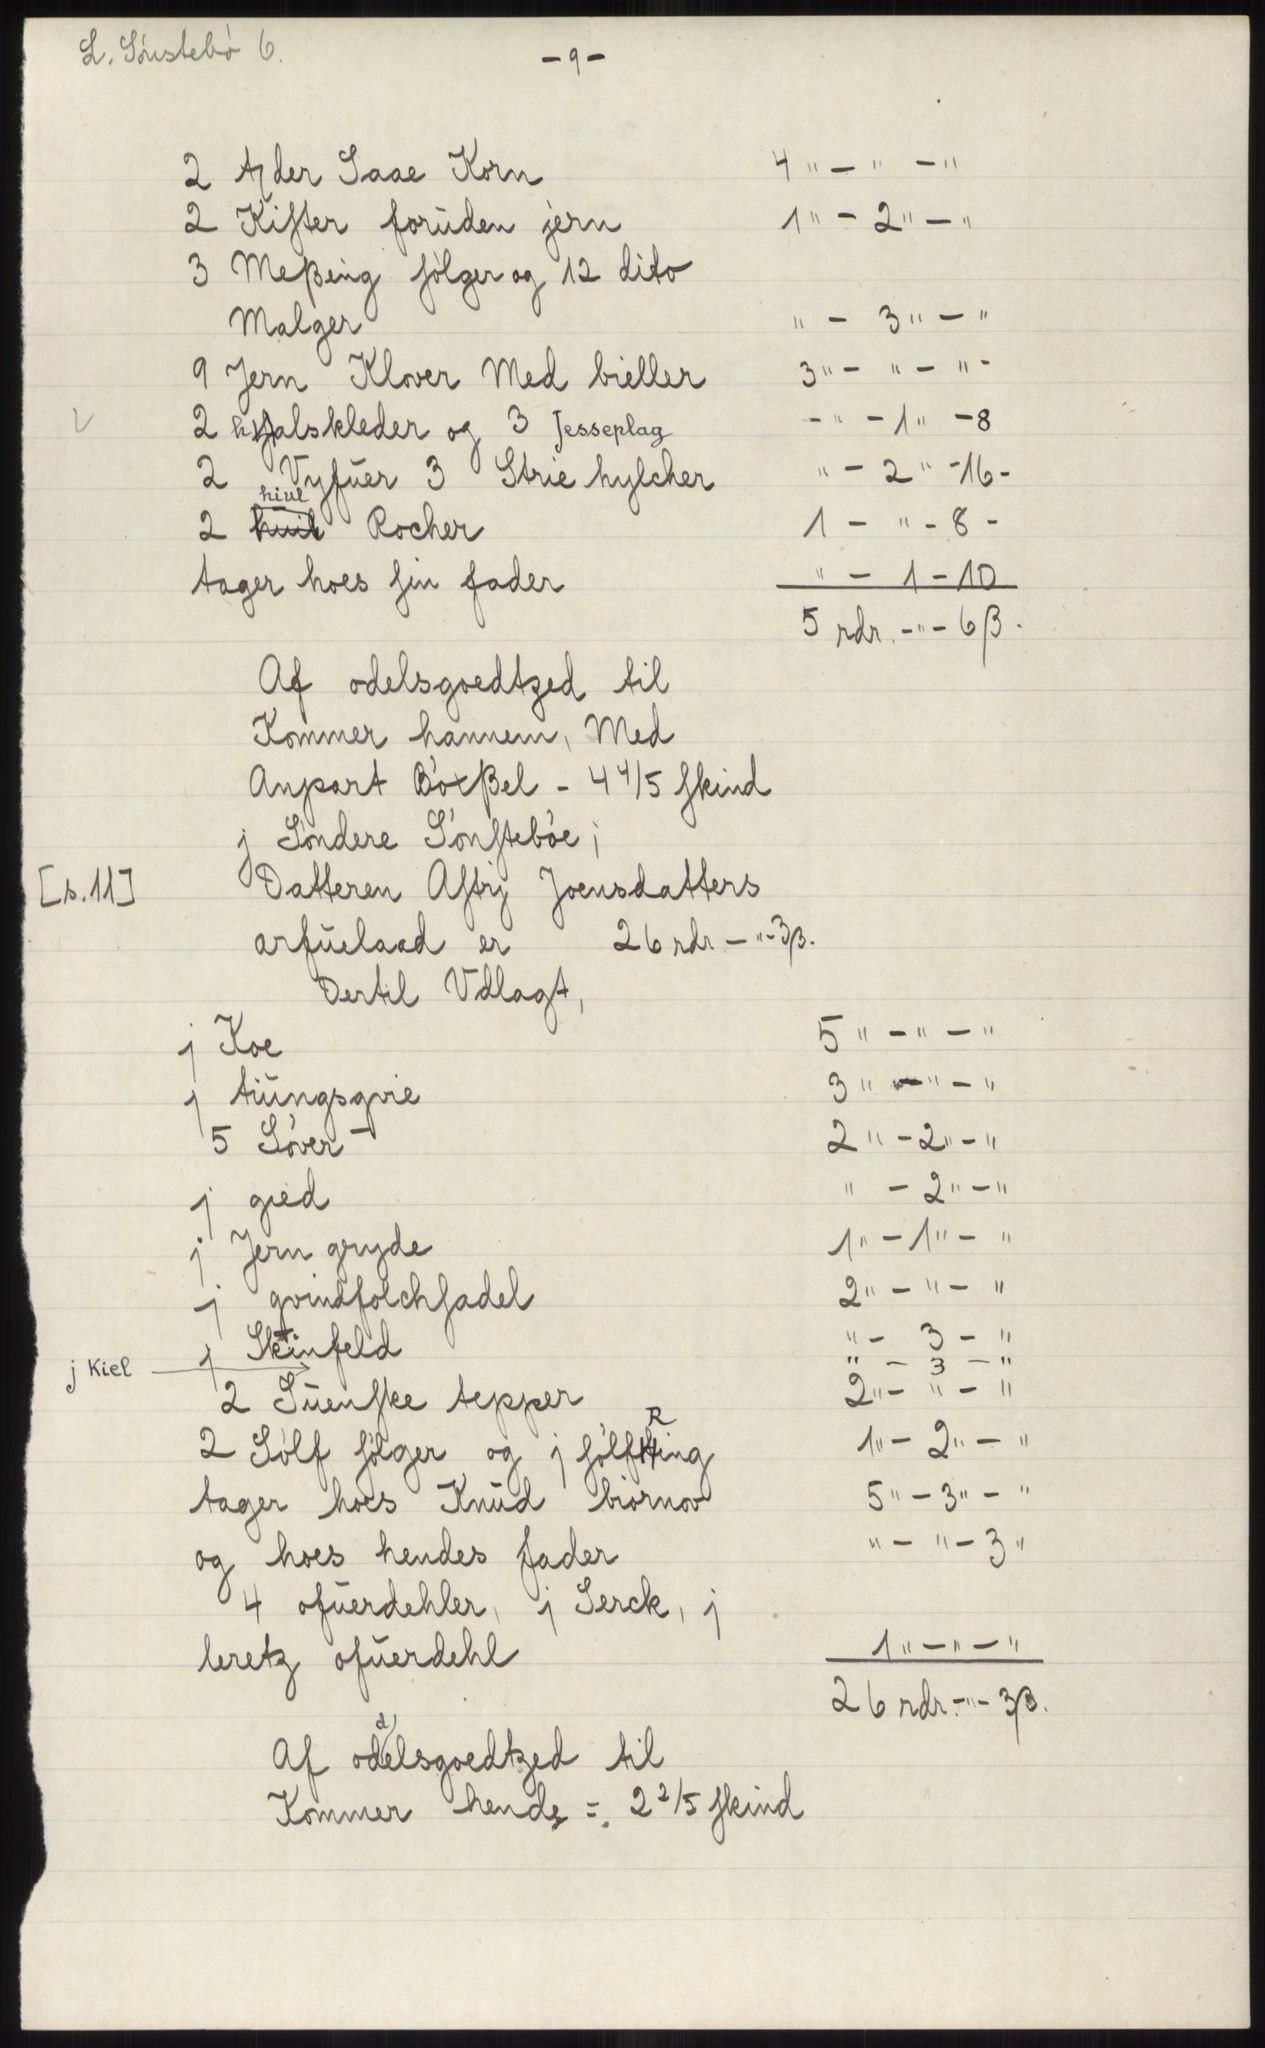 L. Sönstebö 6.
- 9 -
2 tÿder Saae Korn 4 " - " - "
2 Kister foruden jern 1 " - 2 " - "
3 Meßing sölger og 12 dito
Malger " - 3 " - "
9 Jern Klover Med bieller 3 " - " - " -
2 halskleder og 3 Jesseplag - " - 1 " - 8
2 Vyfuer 3 Strie hylcher " - 2 " - 16 -
hiul
2 huil Rocher 1 - " - 8 -
tager hoes sin fader " - 1 - 10
5 rdr. - " - 6 β.
Af odelsgoedtzed til
Kommer hannem, Med
Anpart Böxßel - 4 4/5 skind
j Söndere Sönsteböe;
[s. 11] Datteren Astrj Joensdatters
arfuelaad er 26 rdr. - " - 3β.
Dertil Vdlagt,
j Koe 5 " - " - "
j tiungsqvie 3 " - " - "
5 Söver - 2 " - 2 " - "
j gied " - 2 " - "
j Jern gryde 1 " - 1 " - "
j qvindfolchsadel 2 " - " - "
j Skinfeld " - 3 - "
j Kiel " - 3 - "
2 Suenske tepper 2 " - " - "
2 Sölf sölger og j sölf Ring 1 " - 2 " - "
tager hoes Knud biornov 5 " - 3 " - "
og hoes hendes fader " - " - 3 "
4 ofuerdehler, j Serck, j
leretz ofuerdehl 1 " - " - "
26 rdr. - " - 3β.
Af odelsgoedtzed til
Kommer hende = 2 2/5 skind